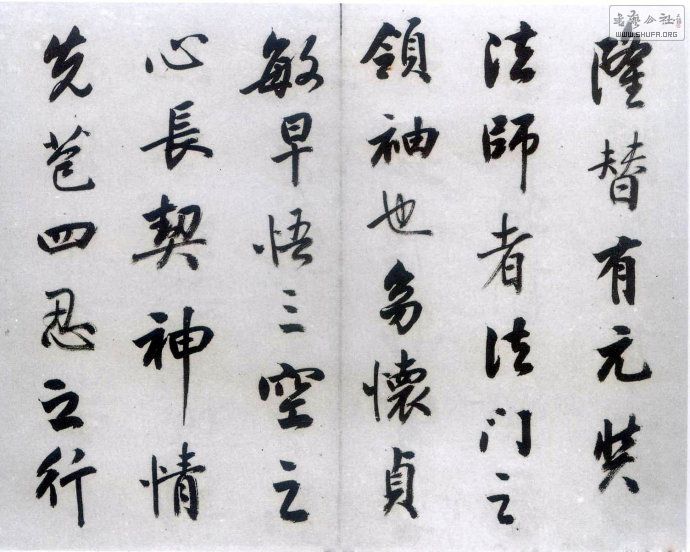 隆替有元奘
法師者法门之
領袖也㓜懷貞
敏早悟三空之
心長契神情
先苞四忍之行
书艺公社
WWW.SHUFA.ORG